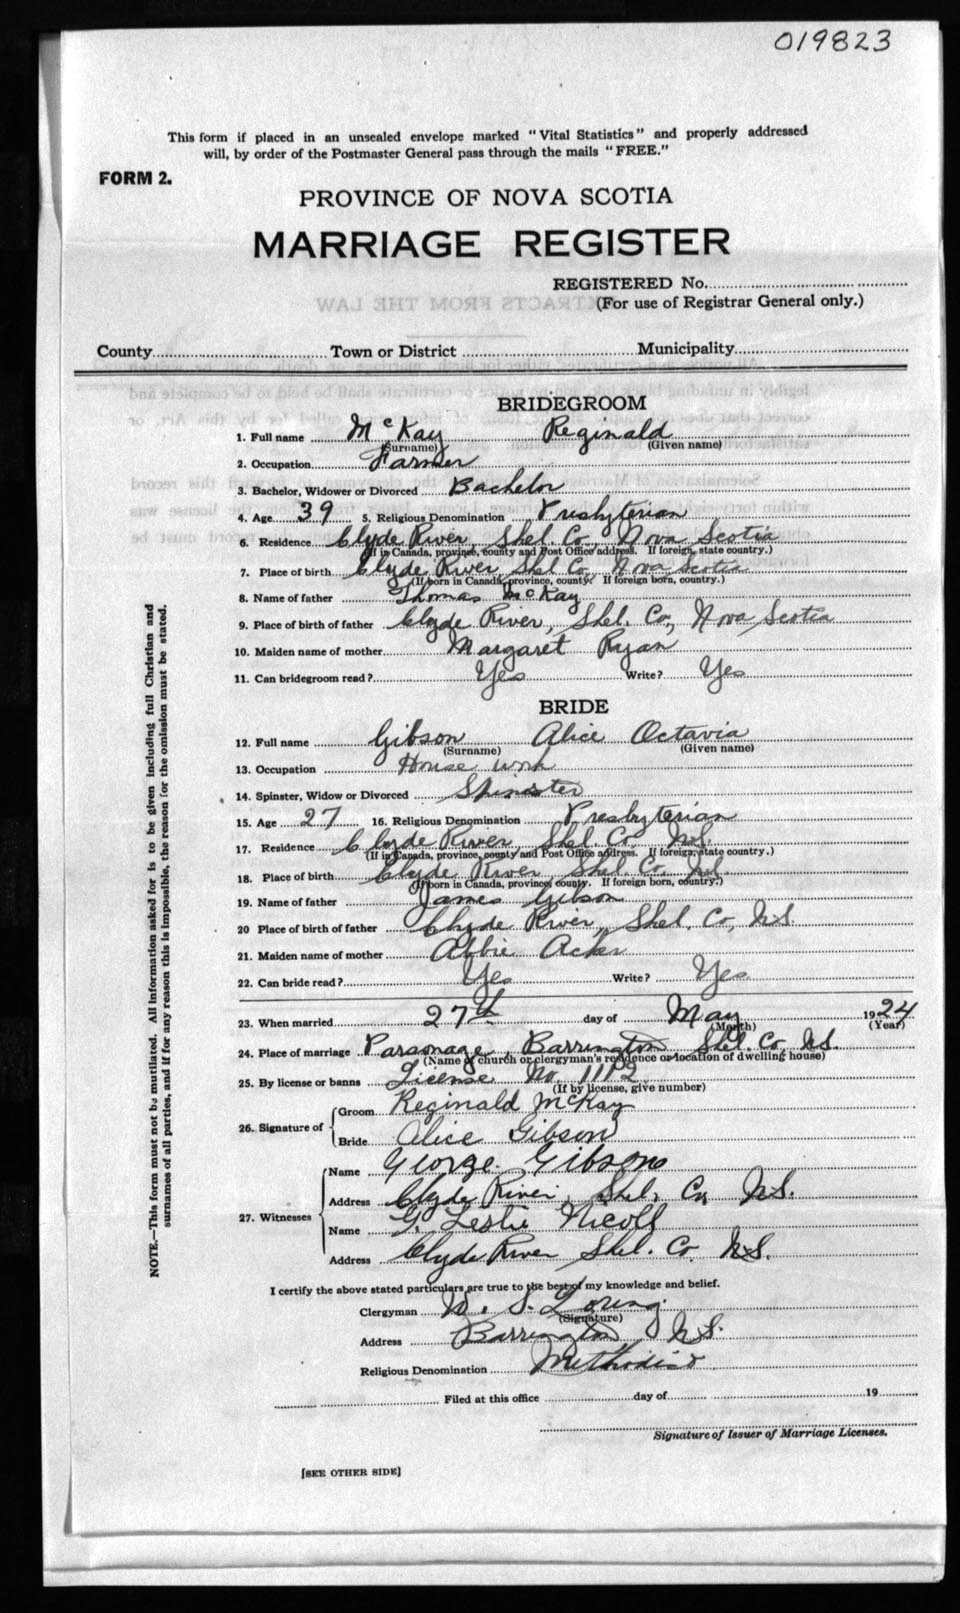 019823
This form if placed in an unsealed envelope marked "Vital Statistics" and properly addressed
will, by order of the Postmaster General pass through the mails "FREE."
FORM 2.
PROVINCE OF NOVA SCOTIA
MARRIAGE REGISTER
REGISTERED No.
(For use of Registrar General only.)
County Town or District Municipality
BRIDEGROOM
1. Full name McKay Reginald
(Surname) (Given name)
2. Occupation Farmer
3. Bachelor, Widower or Divorced Bachelor
4. Age 39 5. Religious Denomination Presbyterian
6. Residence Clyde River, Shel. Co., Nova Scotia
(If in Canada, province, county and Post Office address. If foreign, state country.)
7. Place of birth Clyde River, Shel. Co, Nova Scotia
(If born in Canada, province, county. If foreign born, country.)
8. Name of father Thomas McKay
9. Place of birth of father Clyde River, Shel. Co., Nova Scotia
10. Maiden name of mother Margaret Ryan
11. Can bridegroom read? Yes Write? Yes
BRIDE
12. Full name Gibson Alice Octavia
(Surname) (Given name)
13. Occupation House work
14. Spinster, Widow or Divorced Spinster
15. Age 27 16. Religious Denomination Presbyterian
17. Residence Clyde River, Shel. Co. N.S.
(If in Canada, province, county and Post Office address. If foreign, state country.)
18. Place of birth Clyde River Shel. Co. N.S.
(If born in Canada, province, county. If foreign born, country.)
19. Name of father James Gibson
20 Place of birth of father Clyde River, Shel. Co, N.S.
21. Maiden name of mother Abbie Acker
22. Can bride read? Yes Write? Yes
23. When married 27th day of May 1924
(Month) (Year)
24. Place of marriage Parsonage, Barrington Shel. Co, N.S.
(Name of church or clergyman's residence or location of dwelling house)
25. By license or banns License No 1112
(If by license, give number)
26. Signature of Groom Reginald McKay
Bride Alice Gibson
27. Witnesses Name George Gibson
Address Clyde River, Shel. Co, N.S.
Name G. Leslie Nicoll
Address Clyde River Shel. Co. N.S.
I certify the above stated particulars are true to the best of my knowledge and belief.
Clergyman W. S. Loring
(Signature)
Address Barrington N.S.
Religious Denomination Methodist
Filed at this office day of 19
Signature of Issuer of Marriage Licenses.
[SEE OTHER SIDE]
NOTE.—This form must not be mutilated. All information asked for is to be given including full Christian and
surnames of all parties, and if for any reason this is impossible, the reason for the omission must be stated.